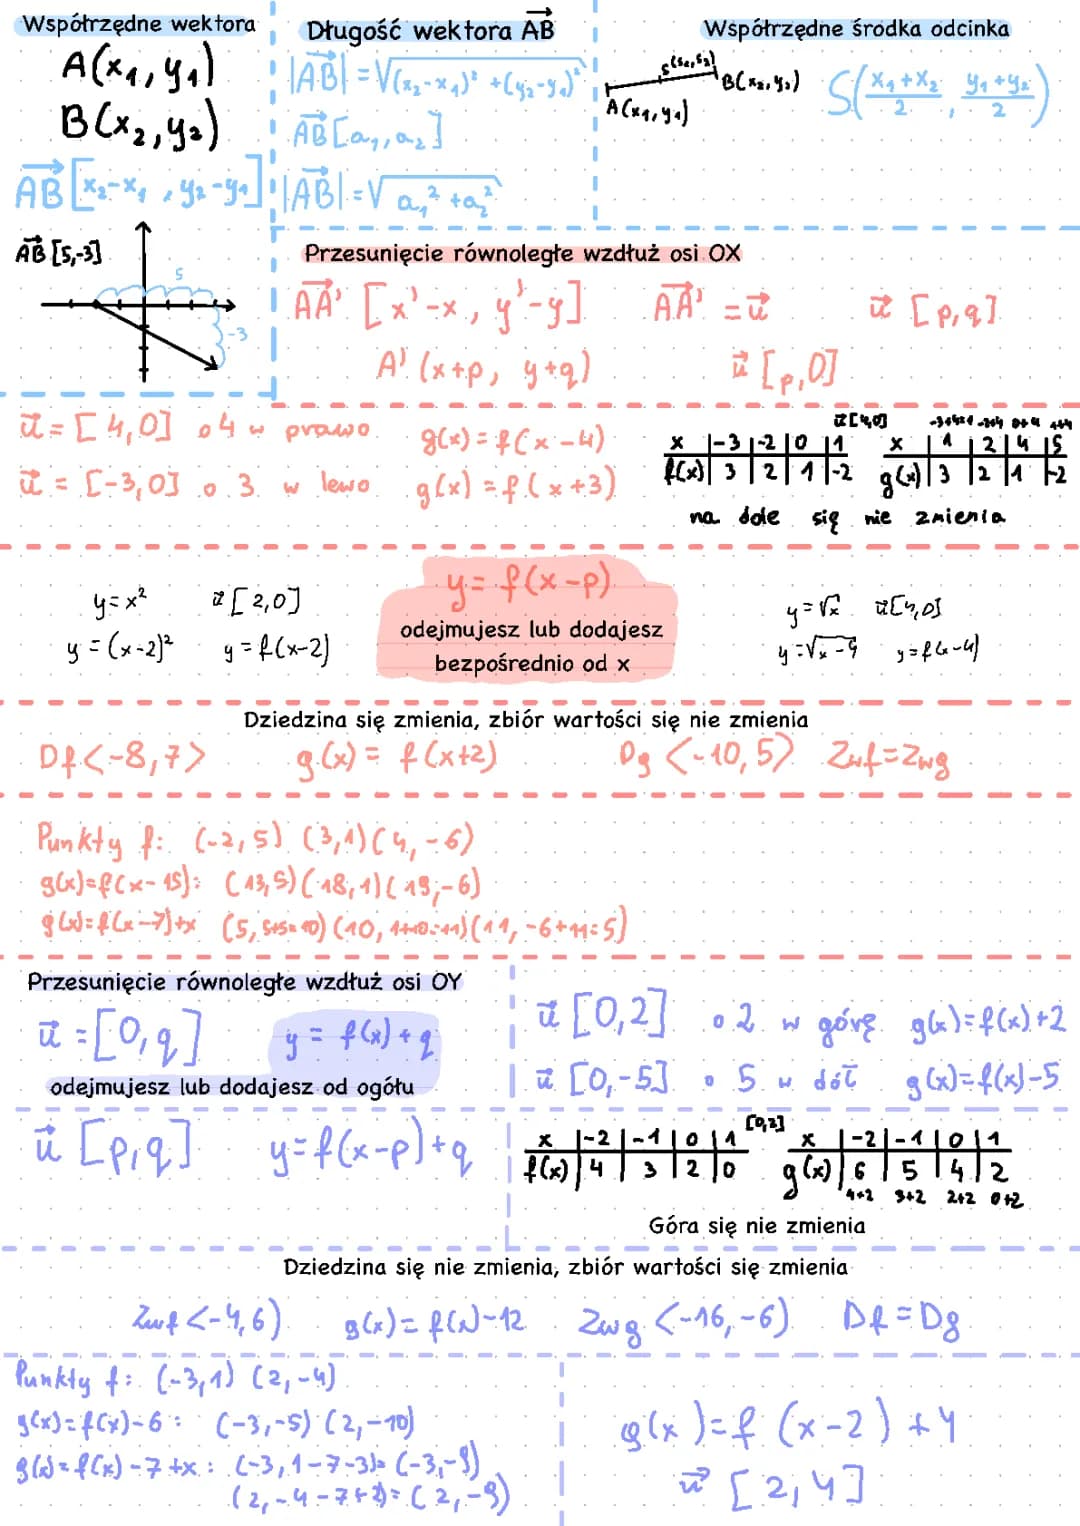 Współrzędne wektora
A(x₁, y₁)
B(x₂, y₂)
AB→ [x₂-x₁, y₂-y₁]
AB→ [5,-3]
5
-3
Długość wektora AB→
|AB→| = √(x₂-x₁)² + (y₂-y₁)²
AB→ [a₁, a₂]
|AB→| = √a₁² + a₂²
Współrzędne środka odcinka
S(s₁, s₂)
A(x₁, y₁)
B(x₂, y₂)
S(x₁+x₂/2, y₁+y₂/2)
Przesunięcie równoległe wzdłuż osi OX
AA'→ [x'-x, y'-y] AA'→ = u→ u→ [p,q]
A' (x+p, y+q) u→ [p,0]
u→ = [4,0] o 4 w prawo g(x) = f(x-4)
u→ = [-3,0] o 3 w lewo g(x) = f(x+3)
u→[4,0] -3+4=1 -2+4 0+4 1+4
x |-3|-2|0|1 x |1|2|4|5
f(x)|3|2|1|-2 g(x)|3|2|1|-2
na dole się nie zmienia
y = x² u→ [2,0]
y = (x-2)² y = f(x-2)
y = f(x-p)
odejmujesz lub dodajesz
bezpośrednio od x
y = √x u→[4,0]
y = √x-4 y = f(x-4)
Dziedzina się zmienia, zbiór wartości się nie zmienia
Df <-8,7> g(x) = f(x+2) Dg <-10,5> Zwf = Zwg
Punkty f: (-2,5) (3,1) (4,-6)
g(x)=f(x-15): (13,5) (18,1) (19,-6)
g(x)=f(x-7)+x (5, 5+5=10) (10, 1+10=11) (11, -6+11=5)
Przesunięcie równoległe wzdłuż osi OY
u→ = [0,q] y = f(x)+q
odejmujesz lub dodajesz od ogółu
u→ [0,2] o 2 w górę g(x)=f(x)+2
u→ [0,-5] o 5 w dół g(x)=f(x)-5
u→ [p,q] y=f(x-p)+q
[0,2]
x |-2|-1|0|1 x |-2|-1|0|1
f(x)|4|3|2|0 g(x)|6|5|4|2
4+2 3+2 2+2 0+2
Góra się nie zmienia
Dziedzina się nie zmienia, zbiór wartości się zmienia
Zwf <-4,6) g(x) = f(x)-12 Zwg <-16,-6) Df = Dg
Punkty f: (-3,1) (2,-4)
g(x)=f(x)-6: (-3,-5) (2,-10)
g(x)=f(x)-7+x: (-3, 1-7-3)= (-3,-9)
(2, -4-7+2)= (2,-9)
g(x)=f(x-2)+4
u→ [2,4]